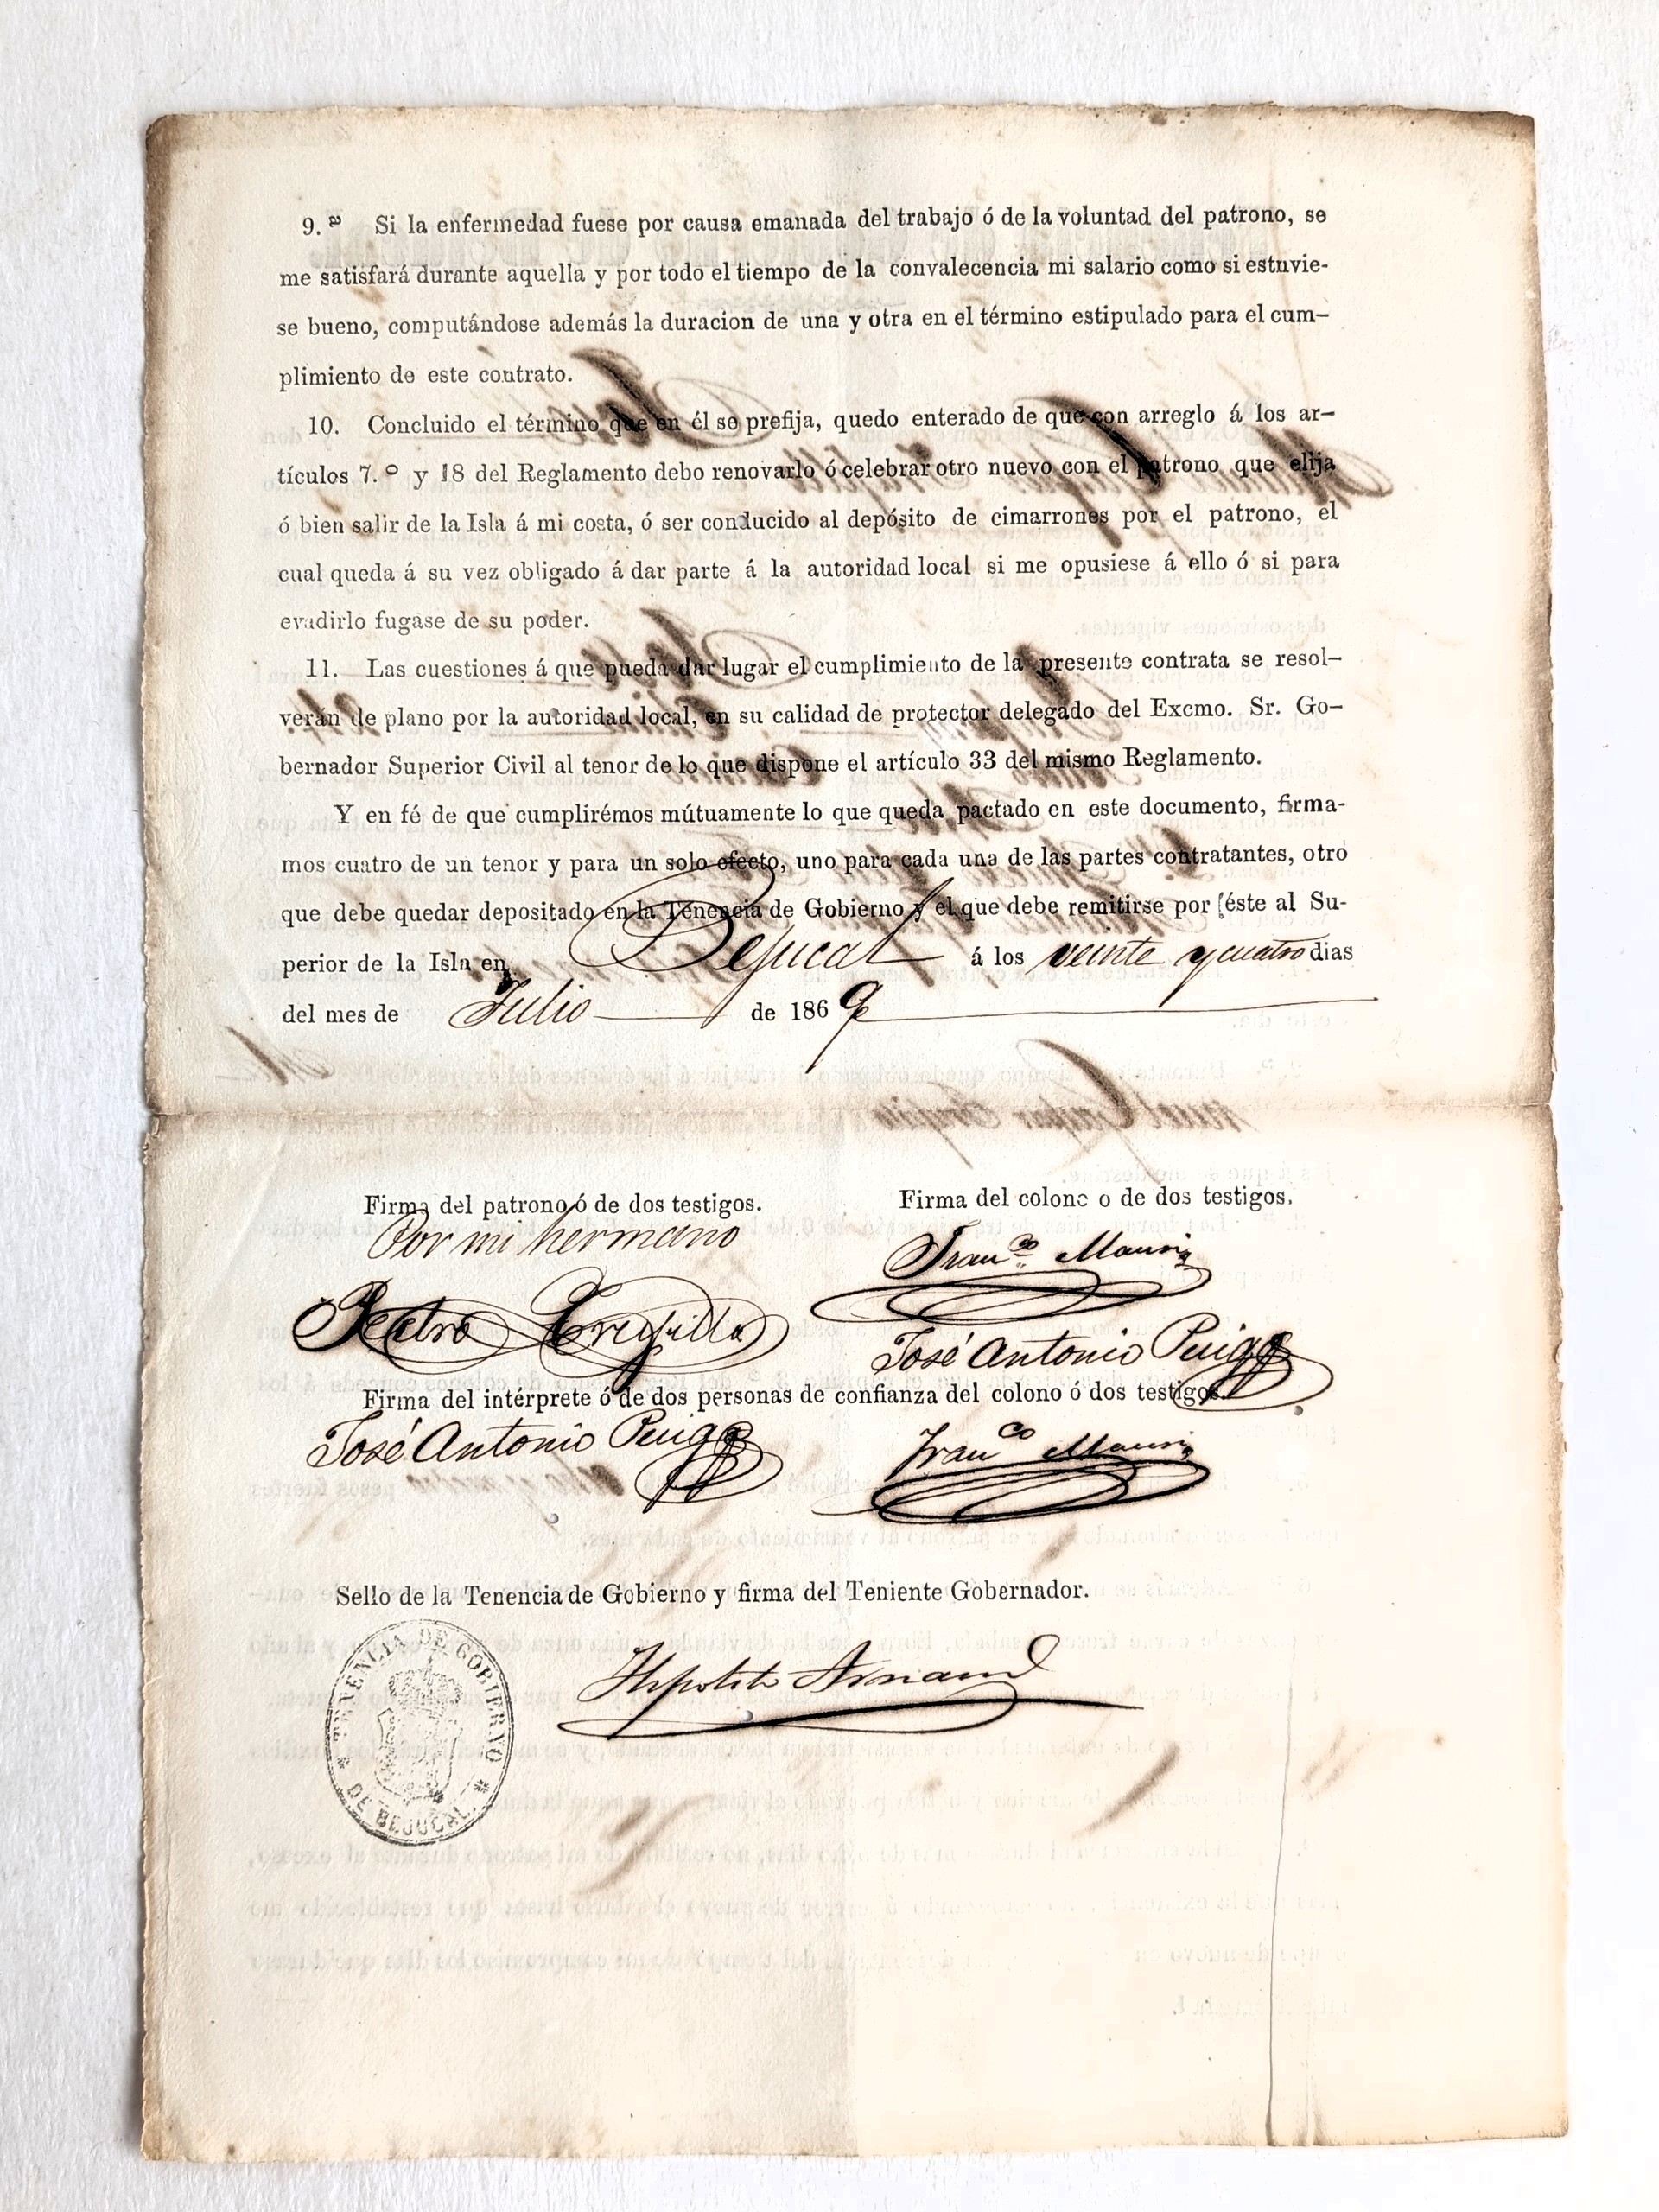 9.ª Si la enfermedad fuese por causa emanada del trabajo ó de la voluntad del patrono, se
me satisfará durante aquella y por todo el tiempo de la convalecencia mi salario como si estuvie-
se bueno, computándose además la duracion de una y otra en el término estipulado para el cum-
plimiento de este contrato.
10. Concluido el término que en él se prefija, quedo enterado de que con arreglo á los ar-
tículos 7.º y 18 del Reglamento debo renovarlo ó celebrar otro nuevo con el patrono que elija
ó bien salir de la Isla á mi costa, ó ser conducido al depósito de cimarrones por el patrono, el
cual queda á su vez obligado á dar parte á la autoridad local si me opusiese á ello ó si para
evadirlo fugase de su poder.
11. Las cuestiones á que pueda dar lugar el cumplimiento de la presente contrata se resol-
verán de plano por la autoridad local, en su calidad de protector delegado del Excmo. Sr. Go-
bernador Superior Civil al tenor de lo que dispone el artículo 33 del mismo Reglamento.
Y en fé de que cumplirémos mútuamente lo que queda pactado en este documento, firma-
mos cuatro de un tenor y para un solo efecto, uno para cada una de las partes contratantes, otro
que debe quedar depositado en la Tenencia de Gobierno y el que debe remitirse por éste al Su-
perior de la Isla en Bejucal á los veinte y cuatro dias
del mes de Julio de 1869
Firma del patrono ó de dos testigos.
Por mi hermano
Pedro Trujillo
Firma del colono o de dos testigos.
Franco Mauri
José Antonio Puig
Firma del intérprete ó de dos personas de confianza del colono ó dos testigos.
José Antonio Puig
Franco Mauri
Sello de la Tenencia de Gobierno y firma del Teniente Gobernador.
TENENCIA DE GOBIERNO
DE BEJUCAL
Hipolito Arnaud